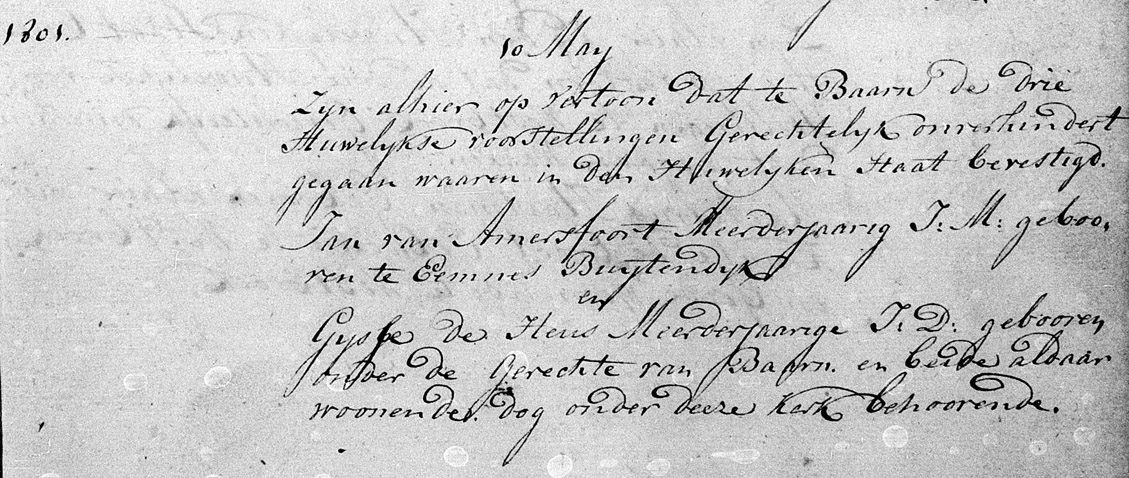 1801.
10 May
Zyn alhier op vertoon dat te Baarn de drie
Huwelykse voorstellingen Gerechtelyk onverhindert
gegaan waaren in den Huwelyken Staat bevestigd.
Jan van Amersfoort Meerderjaarig J: M: geboo,
ren te Eemnes Buytendyk
en
Gysje de Heus Meerderjaarige J: D: gebooren
onder de Gerechte van Baarn. en beide aldaar
woonende. dog onder deeze Kerk behoorende.